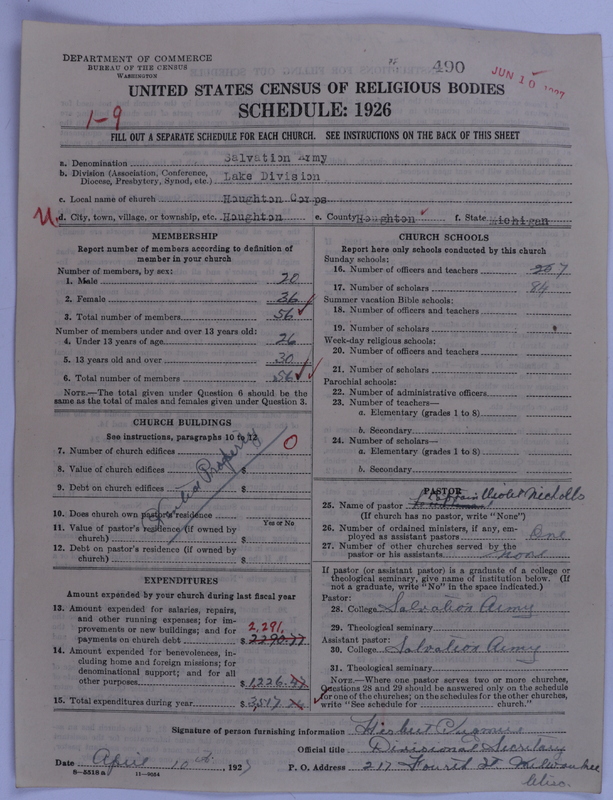 DEPARTMENT OF COMMERCE
BUREAU OF THE CENSUS
WASHINGTON
490
JUN 10 1927
UNITED STATES CENSUS OF RELIGIOUS BODIES
SCHEDULE: 1926
1-9
FILL OUT A SEPARATE SCHEDULE FOR EACH CHURCH. SEE INSTRUCTIONS ON THE BACK OF THIS SHEET
a. Denomination Salvation Army
b. Division (Association, Conference, Diocese, Presbytery, Synod, etc.) Lake Division
c. Local name of church Houghton Corps
d. City, town, village, or township, etc. Houghton e. County Houghton f. State Michigan
MEMBERSHIP
Report number of members according to definition of
member in your church
Number of members, by sex:
1. Male 20
2. Female 36
3. Total number of members 56
Number of members under and over 13 years old:
4. Under 13 years of age 26
5. 13 years old and over 30
6. Total number of members 56
NOTE.—The total given under Question 6 should be
same as the total of males and females given under Question 3.
CHURCH BUILDINGS
See instructions, paragraphs 10 to 12
7. Number of church edifices 0
8. Value of church edifices $
9. Debt on church edifices $
Property
10. Does church own pastor's residence
Yes or No
11. Value of pastor's residence (if owned by
church) $
12. Debt on pastor's residence (if owned by
church) $
EXPENDITURES
Amount expended by your church during last fiscal year
13. Amount expended for salaries, repairs,
and other running expenses; for im-
provements or new buildings; and for 2,291.
payments on church debt $ 2290.77
14. Amount expended for benevolences, in-
cluding home and foreign missions; for
denominational support; and for all
other purposes $ 1,226.47
15. Total expenditures during year $ 3,517.
CHURCH SCHOOLS
Report here only schools conducted by this church
Sunday schools:
16. Number of officers and teachers 7
17. Number of scholars 84
Summer vacation Bible schools:
18. Number of officers and teachers
19. Number of scholars
Week-day religious schools:
20. Number of officers and teachers
21. Number of scholars
Parochial schools:
22. Number of administrative officers
23. Number of teachers—
a. Elementary (grades 1 to 8)
b. Secondary
24. Number of scholars—
a. Elementary (grades 1 to 8)
b. Secondary
PASTOR
25. Name of pastor Captain Violet Nicholls
(If church has no pastor, write "None")
26. Number of ordained ministers, if any, em-
ployed as assistant pastors One
27. Number of other churches served by the
pastor or his assistants none
If pastor (or assistant pastor) is a graduate of a college or
theological seminary, give name of institution below. (If
not a graduate, write "No" in the space indicated.)
Pastor:
28. College Salvation Army
29. Theological seminary
Assistant pastor:
30. College Salvation Army
31. Theological seminary
NOTE.—Where one pastor serves two or more churches,
Questions 28 and 29 should be answered only on the schedule
for one of the churches; on the schedules for the other churches,
write "See schedule for church."
Signature of person furnishing information
Official title Divisional Secretary
Date April 10th, 1927 P. O. Address 217 Fourth St Milwaukee
Wisc.
8—5518 a 11—9054